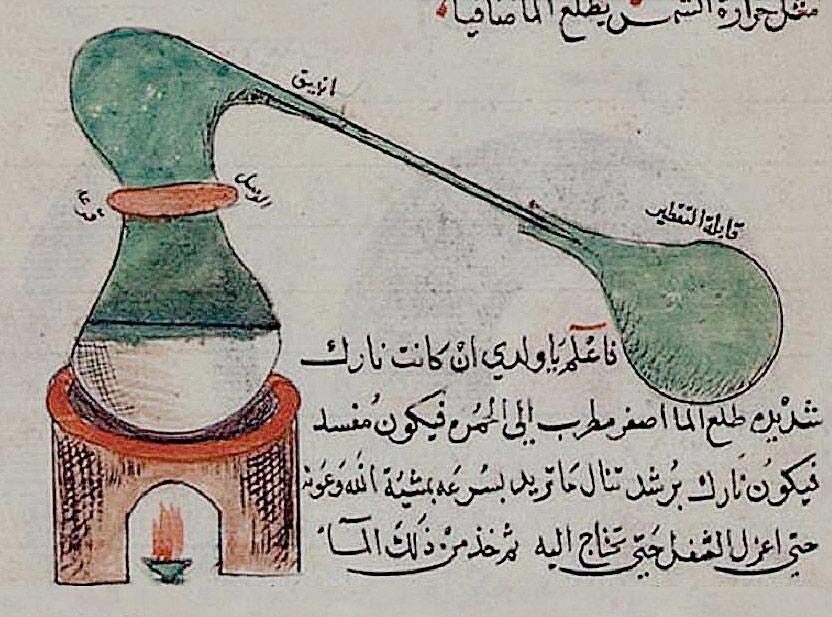 مثل حرارة الشمس يطلع الما صافيا
انبيق
الوصل
قابلة التقطير
فاعلم يا ولدي ان كانت نارك
شديده طلع الما اصفر مطرب الى الحمره فيكون مفسد
فيكون نارك برشد تنال ما تريد بسرعه بمشية الله وعونه
حتى اعزل الثفل حتى تحتاج اليه ثم خذ من ذلك المآ